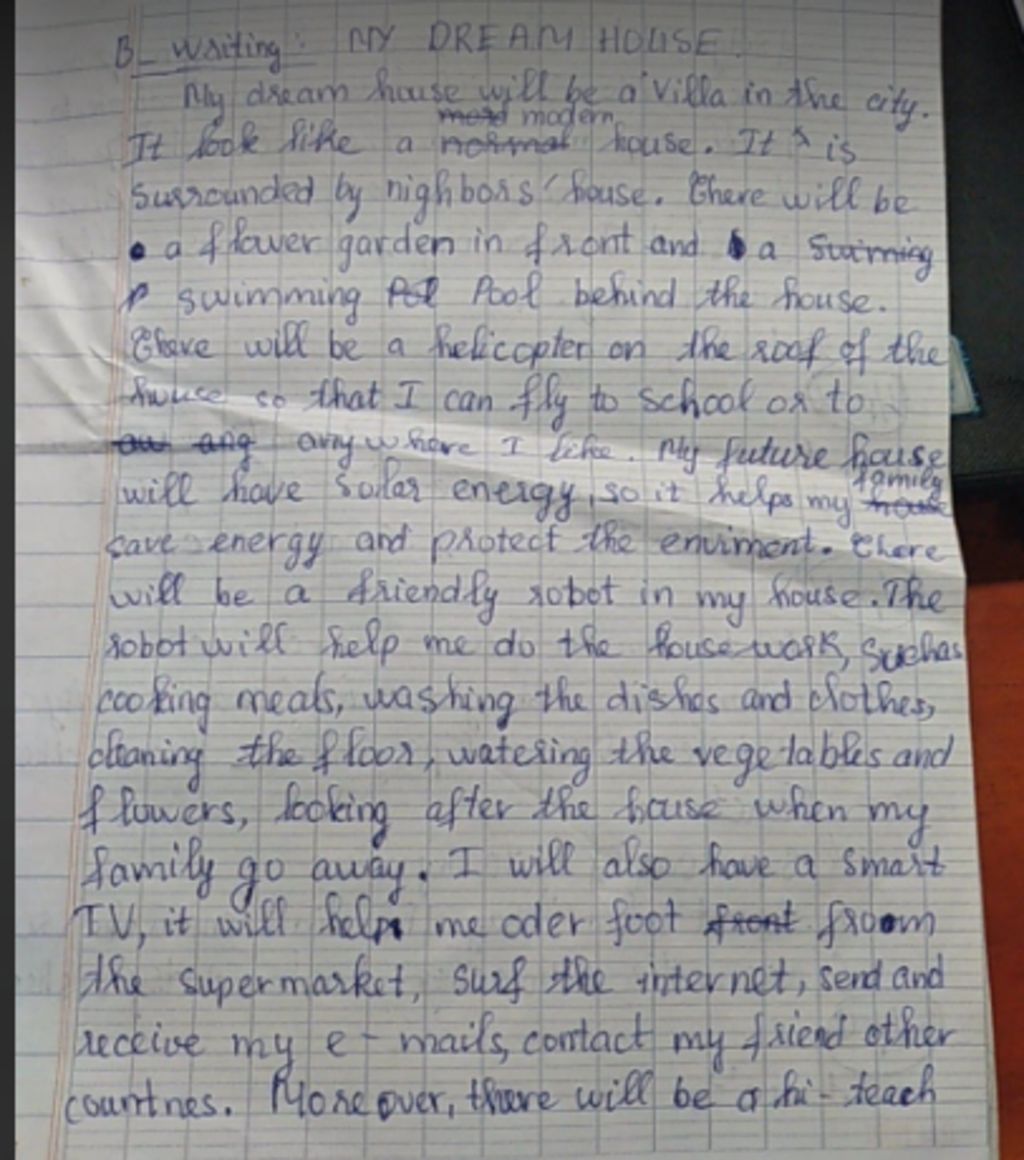 B_ Writing: MY DREAM HOUSE
My dream house will be a villa in the city.
modern
It look like a normal house. It ^ is
surrounded by nighbors' house. There will be
a flower garden in front and a swirming
swimming Pool behind the house.
There will be a helicopter on the roof of the
house so that I can fly to school or to
any where I like. My future house
family
will have solar energy, so it helps my house
save energy and protect the enviment. There
will be a friendly robot in my house. The
robot will help me do the house work, such as
cooking meals, washing the dishes and clothes,
cleaning the floor, watering the vegetables and
flowers, looking after the house when my
family go away. I will also have a smart
TV, it will help me oder foot front froom
the supermarket, surf the internet, send and
receive my e-mails, contact my friend other
countnes. Moreover, there will be a hi-teach